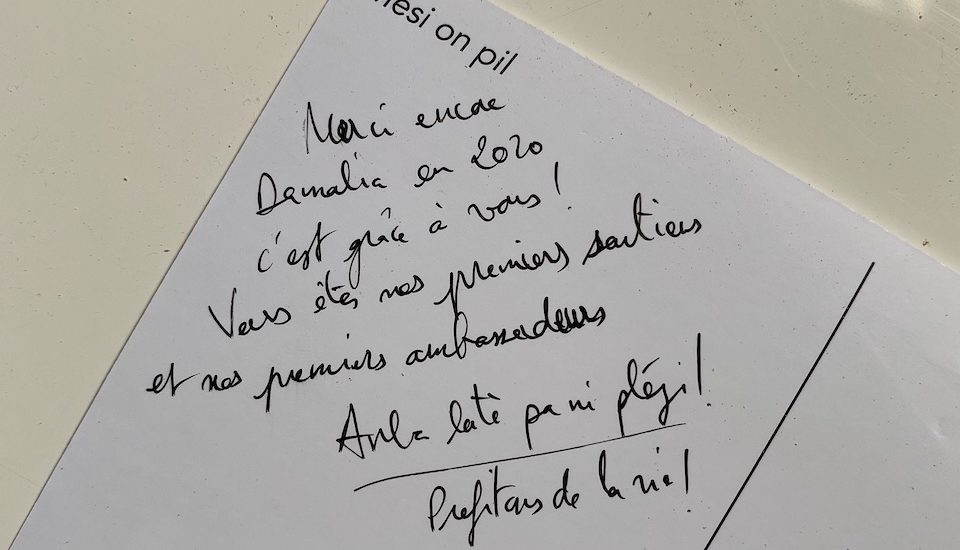 nesi on pil
Merci encore
Damalia en 2020
c'est grâce à vous !
Vous êtes nos premiers soutiens
et nos premiers ambassadeurs
Anba latè pa ni plézi !
Profitons de la vie !